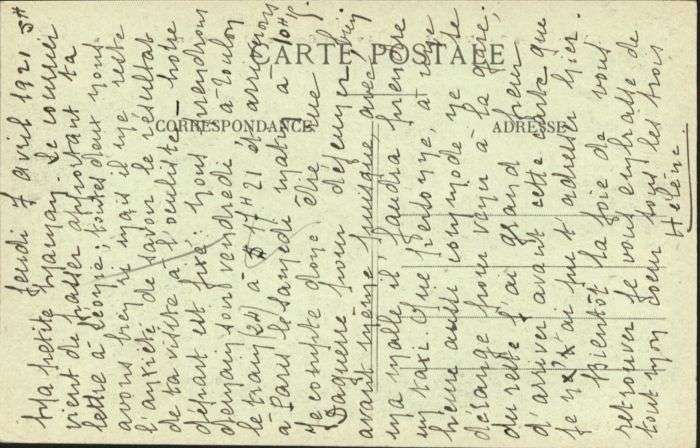 CARTE POSTALE
CORRESPONDANCE
ADRESSE
Jeudi 7 avril 1921 5H
Ma petite Maman. Le courrier
vient de passer apportant ta
lettre à Léonie; toutes deux nous
avons bien ri mais il me reste
l'anxiété de savoir le résultat
de ta visite à l'oculiste — Notre
départ est fixé, nous prendrons
demain soir vendredi à Toulon
le train (24) à 17H21 et arriverons
à Paris le samedi matin à 10H
Je compte donc être rue
Daguerre pour déjeuner,
avant même puisque avec
ma malle il faudra prendre
un taxi. Que personne, à une
heure aussi incommode ne se
dérange pour venir à la gare,
du reste j'ai grand peur
d'arriver avant cette carte que
je n'ai pu t'adresser hier.
Bientôt la joie de vous
retrouver je vous embrasse de
tout mon coeur tous les trois
Hélène